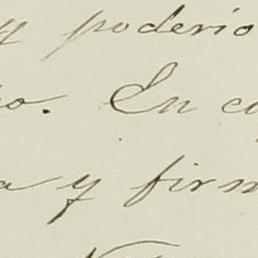 y poderio
o. En c
a y firm